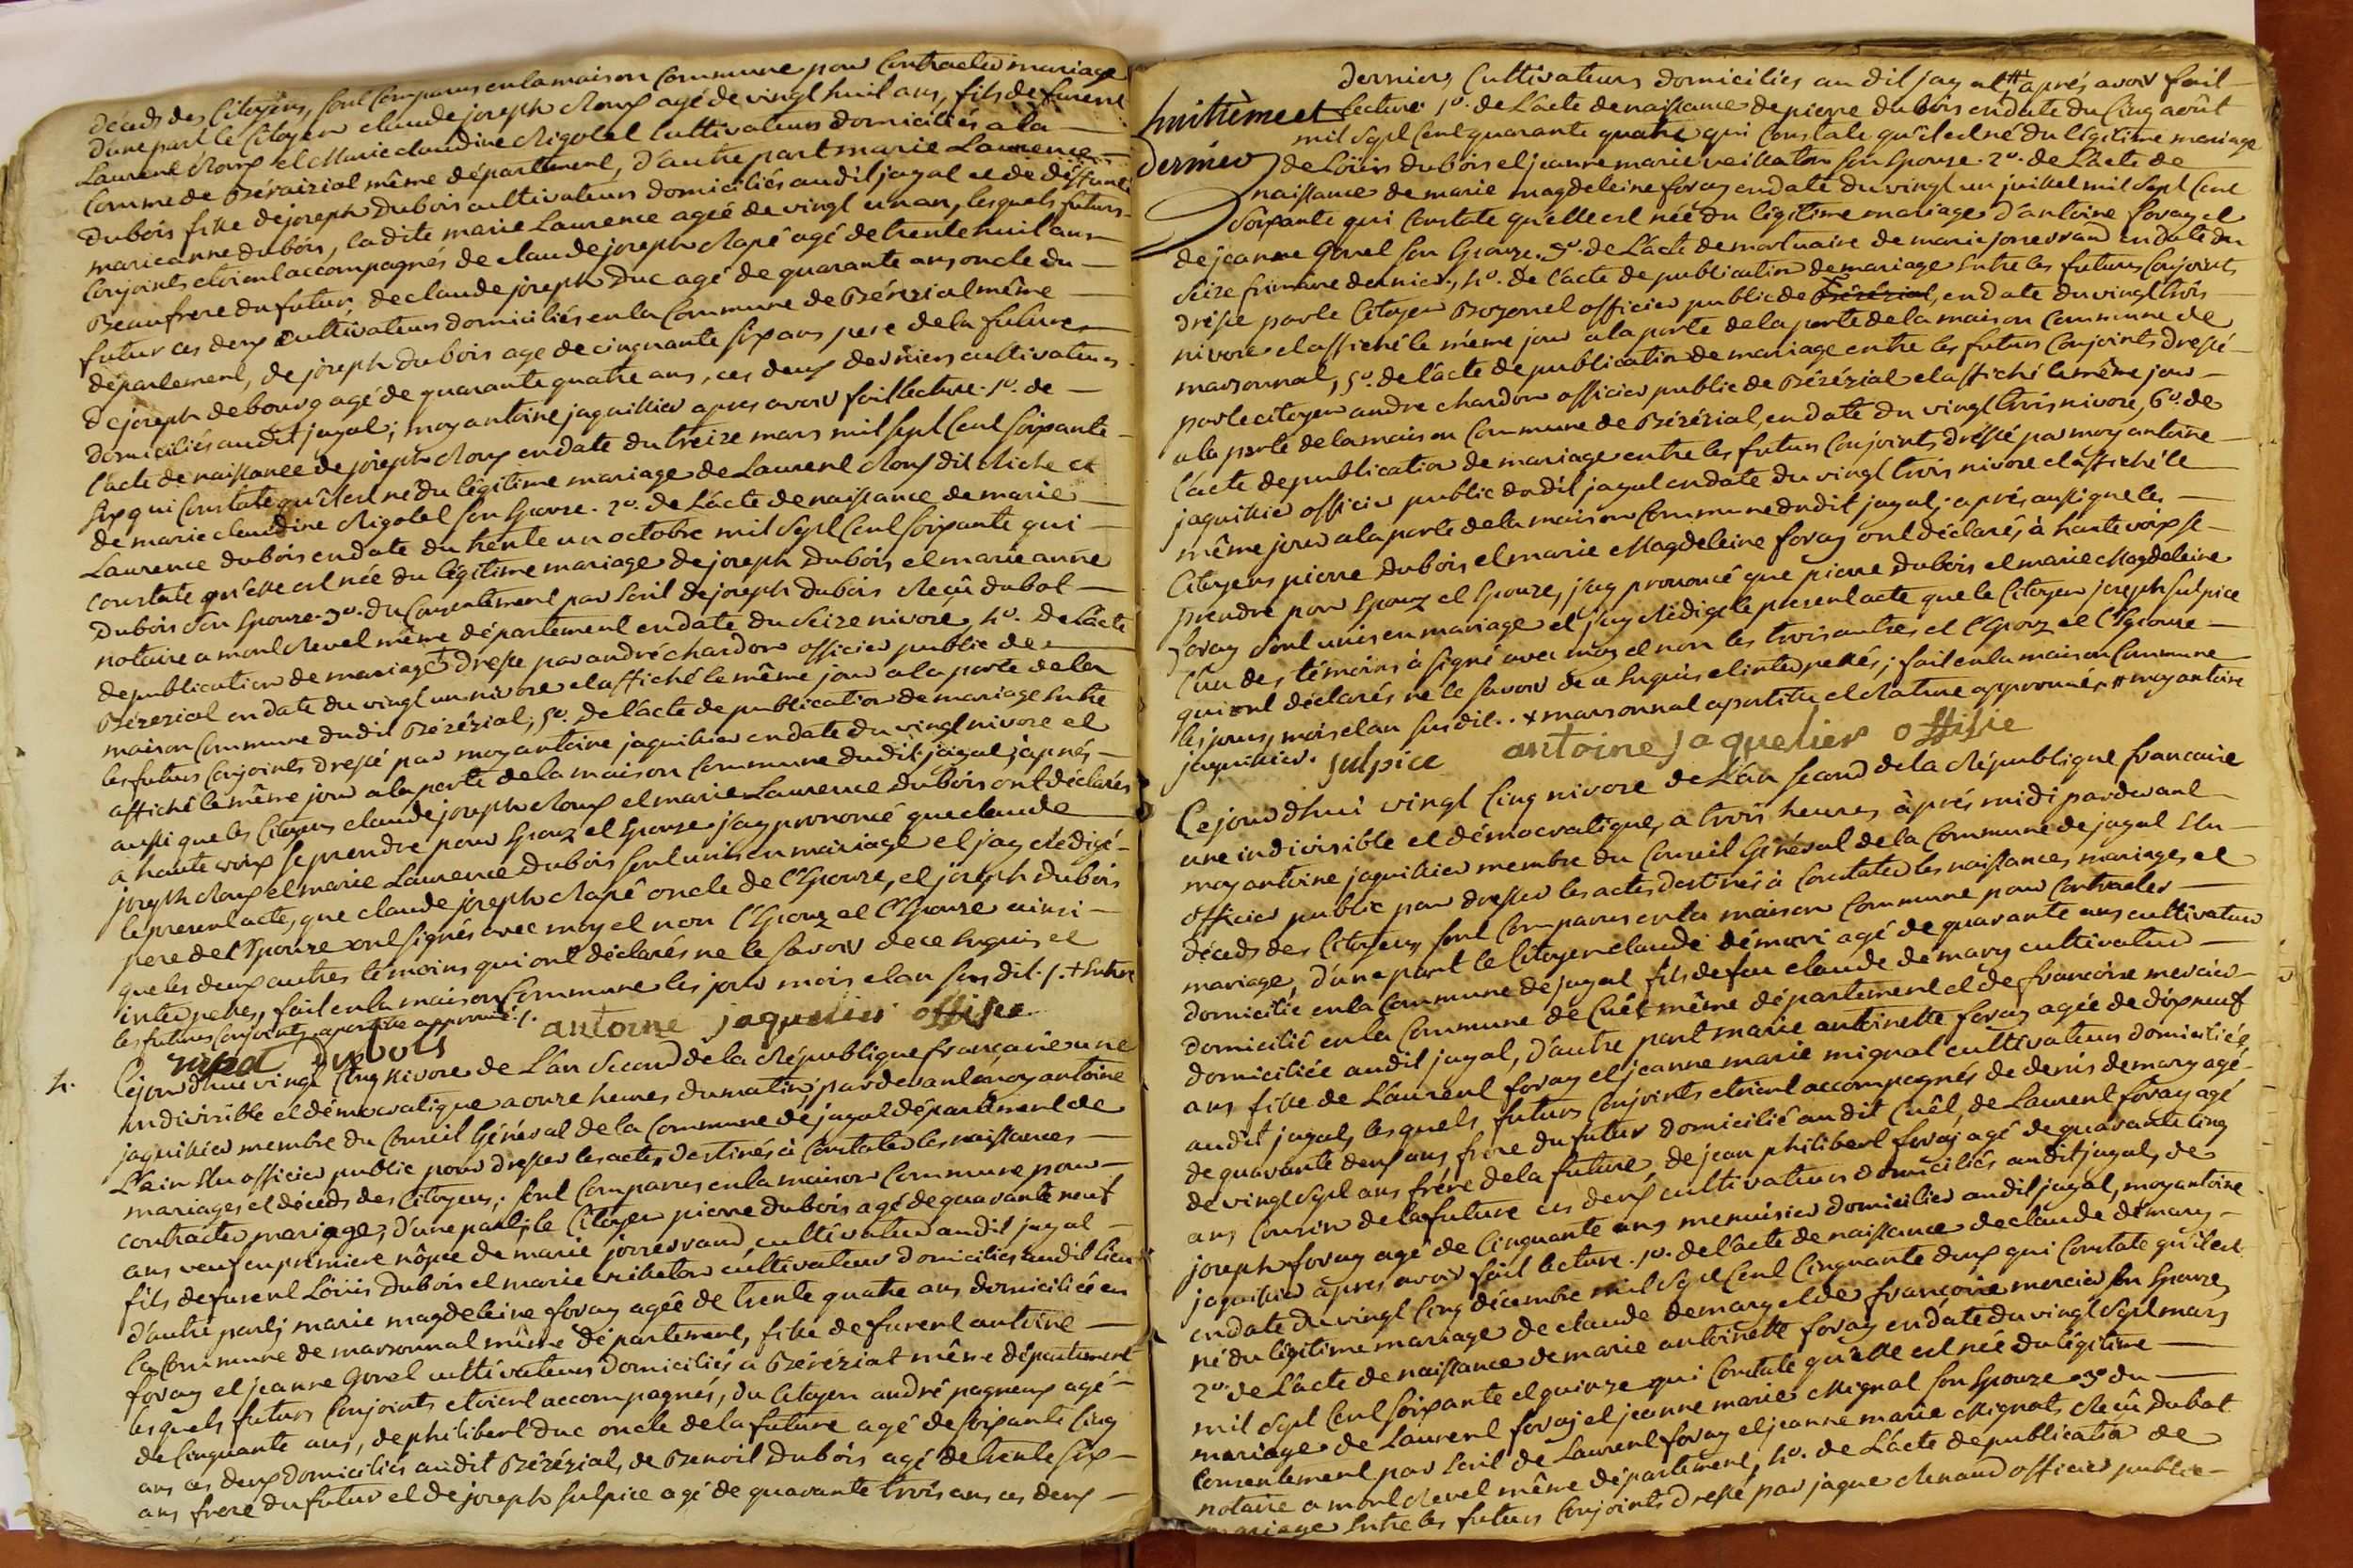 déceds des Citoyens, sont Comparus en la maison Commune pour Contracter mariage
d'une part le Citoyen claude joseph Roux agé de vingt huit ans, fils de furent
Laurent Roux et Marie claudine Rigolet Cultivateurs domiciliés a la
Commune de Béréiziat même département, d'autre part marie Laurence
dubois fille de joseph Dubois cultivateurs domiciliés audit jayat et de deffunte
marieanne dubois, ladite marie Laurence ageé de vingt un an, lesquels futurs
Conjoints etoient accompagnés de claude joseph Rapé agé de trente huit ans
Beaufrere du futur, de claude joseph Duc agé de quarante ans oncle du
futur ces deux Cultivateurs domiciliés en la Commune de Béréziat même
département, de joseph dubois age de cinquante six ans pere de la future
de joseph debourg agé de quarante quatre ans, ces deux derniers cultivateurs
domiciliés audit jayat; moy antoine jaquillier apres avoir fait lecture. 1º. de
l'acte de naissance de joseph Roux en date du treize mars mil sept Cent soixante
six qui Constate qu'il est né du légitime mariage de Laurent Roux dit Riche et
de marie claudine Rigolet son Epouse. 2º. de L'acte de naissance de marie
Laurence dubois en date du trente un octobre mil Sept Cent soixante qui
constate qu'elle est née du légitime mariage de joseph dubois et marie anne
Dubois son Epouze. 3º. du Consentement par Ecrit de joseph dubois Reçû dubat
notaire a mont Revel même département en date du seize nivose, 4º. de L'acte
de publication de mariage+ dressé par andré chardon officier public de
Béreziat en date du vingt un nivose et affiché le même jour a la porte de la
maison Commune dudit Béréziat, 5º. de l'acte de publication de mariage Entre
les futurs Conjoints dressé par moy antoine jaquillier en date du vingt nivose et
affiché le même jour a la porte de la maison Commune dudit jayat; après
aussi que les Citoyens claude joseph Roux et marie Laurence dubois ont déclarés
à haute voix se prendre pour Epoux et Epouze j'ay prononcé que claude
joseph Roux et marie Laurence dubois sont unis en mariage et j'ay Rédigé
le present acte, que claude joseph Rapé oncle de l'Epouze, et joseph dubois
pere de l'Epouze ont signés avec moy et non l'Epoux et l'Epouze ainsi
que les deux autres témoins qui ont déclarés ne le savoir de ce Enquis et
interpellés, fait en la maison Commune les jour mois et an susdit./. + Entre
les futurs Conjoints apostille approuvé./.
rapéd dubois antoine jaquelier offisie
4. Cejourd'hui vingt Cinq Nivose de L'an Second de la République française une
indivisible et démocratique a onze heures du matin, pardevant moy antoine
jaquillier membre du Conseil Général de la Commune de jayat département de
L'ain Elu officier public pour dresser les actes destinés à Constater les naissances
mariages et décéds des Citoyens; sont Comparus en la maison Commune pour
contracter mariage, d'une part, le Citoyen pierre dubois agé de quarante neuf
ans veuf en premiere nôpce de marie josserand, cultivateur audit jayat
fils de furent Loüis Dubois et marie cultivateurs domiciliés audit lieu
d'autre part; marie magdeleine foray agée de trente quatre ans domiciliée en
la Commune de marsonnat même département, fille de furent antoine
foray et jeanne Gorel cultivateurs domiciliés a Béréziat même département
lesquels futurs Conjoints etoient accompagnés, du Citoyen andré pagneux agé
de Cinquante ans, de philibert Duc oncle de la future agé de soixante Cinq
ans ces deux domiciliés audit Béréziat, de Benoit Dubois agé de trente six
ans frere du futur et de joseph Sulpice agé de quarante trois ans ces deux
derniers Cultivateurs domiciliés au dit jayat, aprés avoir fait
huittième et
dernier
Lecture 1º. de L'acte de naissance de pierre dubois en date du Cinq août
mil Sept Cent quarante quatre qui Constate qu'il est né du légitime mariage
de Loüis dubois et jeanne marie son Epouze. 2º. de L'acte de
naissance de marie magdeleine foray en date du vingt un juillet mil Sept Cent
soixante qui Constate qu'elle est née du légitime mariage d'antoine foray et
de jeanne Gorel son Epouze. 3º. de L'acte de mortuaire de marie josserand en date du
seize frimaire dernier, 4º. de l'acte de publication de mariage Entre les futurs Conjoints
dressé par le Citoyen Bozonet officier public de Béréziat, en date du vingt trois
nivose et affiché le même jour a la porte de la porte de la maison Commune de
marsonnat, 5º. de l'acte de publication de mariage entre les futurs Conjoints dressé
par le citoyen andre chardon officier public de Béréziat et affiché le même jour
a la porte de la maison Commune de Béréziat, en date du vingt trois nivose, 6º. de
l'acte de publication de mariage entre les futurs Conjoints dressé par moy antoine
jaquillier officier public dudit jayat en date du vingt trois nivose et affiché le
même jour a la porte de la maison Commune dudit jayat; aprés aussi que les
Citoyens pierre dubois et marie Magdeleine foray ont déclarés à haute voix se
prendre pour Epoux et Epouze, j'ay prononcé que pierre Dubois et marie Magdeleine
foray sont unis en mariage et j'ay Rédigé le present acte que le Citoyen joseph Sulpice
l'un des témoins à signé avec moy et non les trois autres et l'Epoux et l'Epouze
qui ont déclarés ne le savoir de ce Enquis et interpellés; fait en la maison Commune
les jours, mois et an susdit. x marsonnat apostille et Rature approuvée # moy antoine
jaquillier. sulpice antoine jaquelier offisie
Cejourd'hui vingt Cinq nivose de L'an second de la République francaise
une indivisible et démocratique, a trois heures aprés midi pardevant
moy antoine jaquillier membre du Conseil Général de la Commune de jayat Elu
officier public pour dresser les actes destinés à Constater les naissances, mariages et
décéds des Citoyens, sont Comparus en la maison Commune pour Contracter
mariage, d'une part le Citoyen claude démari agé de quarante ans cultivateur
domicilié en la Commune de jayat fils de feu claude démary cultivateur
domicilié en la Commune de Cuêt même département et de francoise mercier
domiciliée audit jayat, d'autre part marie antoinette foray agée de dixneuf
ans fille de Laurent foray et jeanne marie mignat cultivateurs domiciliés
audit jayat, lesquels futurs Conjoints etoient accompagnés de denis demary agé
de quarante deux ans, frere du futur domicilié audit Cuêt, de Laurent foray agé
de vingt Sept ans frére de la future, de jean philibert foray agé de quarante cinq
ans Cousin de la future ces deux cultivateurs domiciliés audit jayat, de
joseph foray agé de Cinquante ans menuisier domicilier audit jayat, moy antoine
jaquillier aprés avoir fait lecture. 1º. de l'acte de naissance de claude démary
en date du vingt Cinq décembre mil Sept Cent Cinquante deux qui Constate qu'il est
né du légitime mariage de claude demary et de françoise mercier son Epouze,
2º. de L'acte de naissance de marie antoinette foray en date du vingt Sept mars
mil Sept Cent soixante et quinze qui Constate qu'elle est née du légitime
mariage de Laurent foray et jeanne marie Mignat son Epouze. 3º. du
Consentement par Ecrit de Laurent foray et jeanne marie Mignat, Reçû Dubat
notaire a mont Revel même département, 4º. de L'acte de publication de
mariage Entre les futurs Conjoints dressé par jaque Renaud officier public